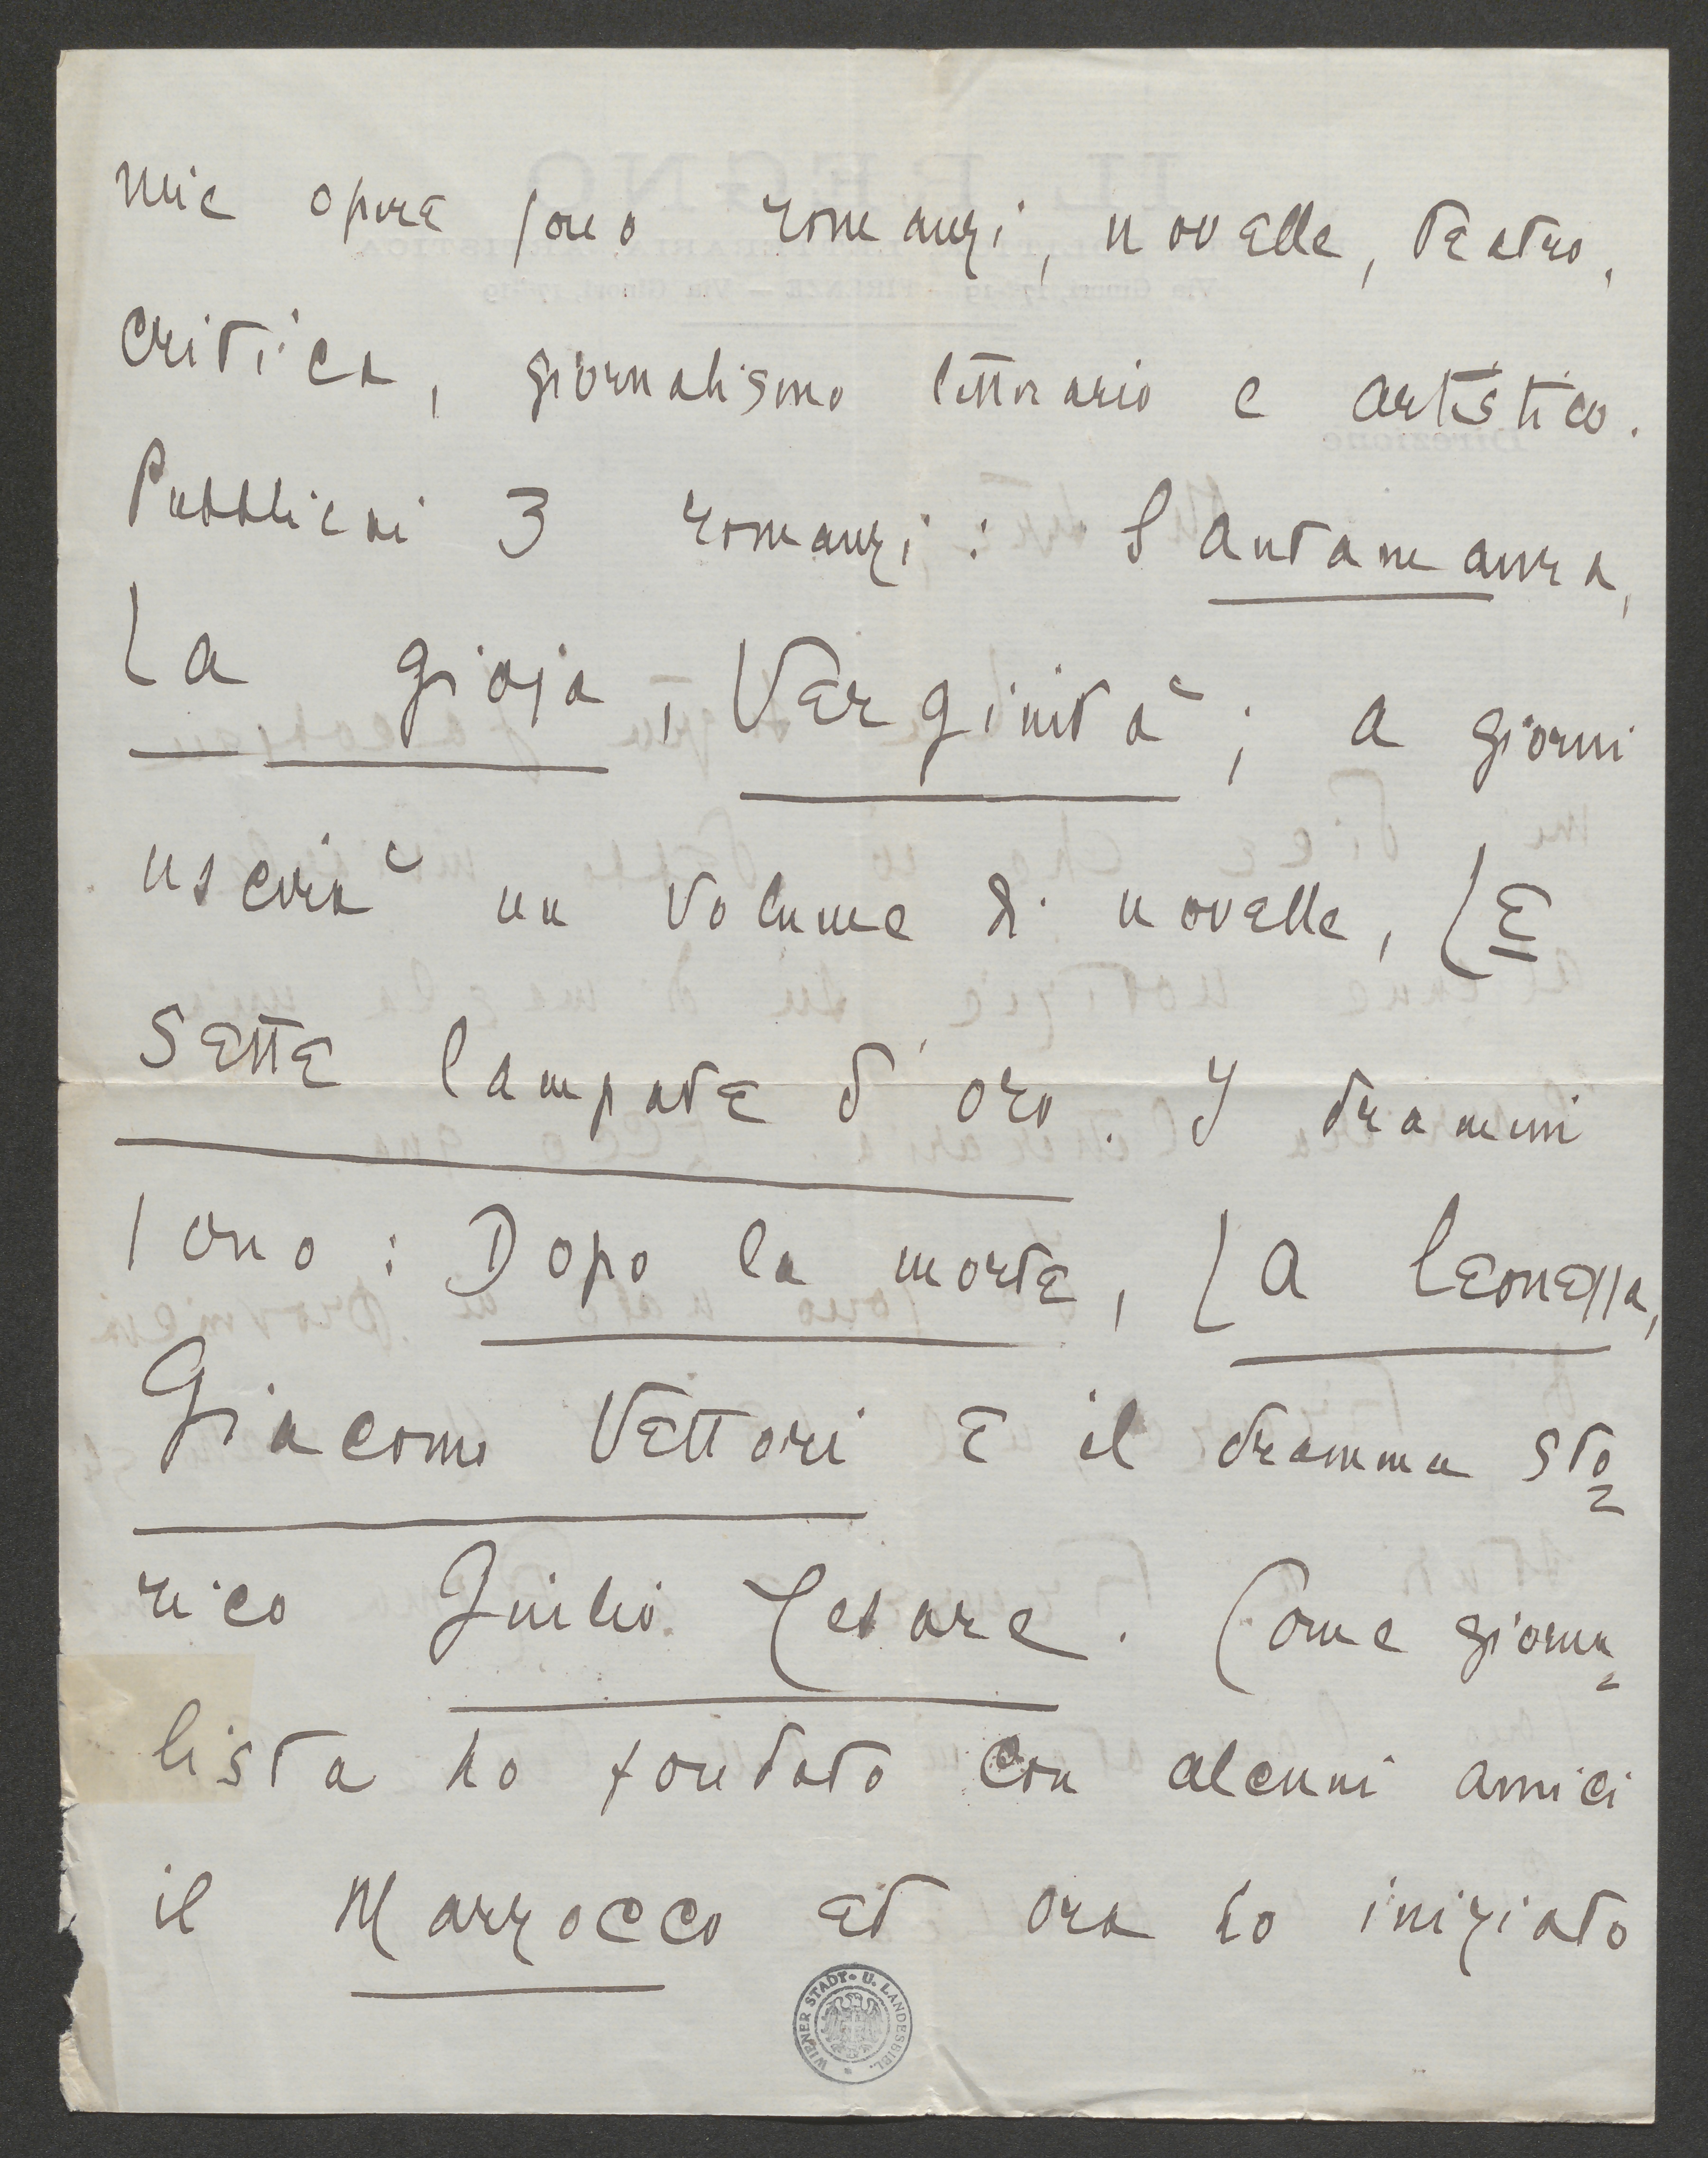 mie opere sono romanzi, novelle, teatro,
critica, giornalismo letterario e artistico.
Pubblicai 3 romanzi: Santamaura,
La gioia, Verginità; a giorni
uscirà un volume di novelle, Le
sette lampade d'oro. I drammi
sono: Dopo la morte, La Leonessa,
Giacomo Vettori e il dramma sto=
rico Giulio Cesare. Come giorna=
lista ho fondato con alcuni amici
il Marzocco ed ora ho iniziato
WIENER STADT- U. LANDESBIBL.